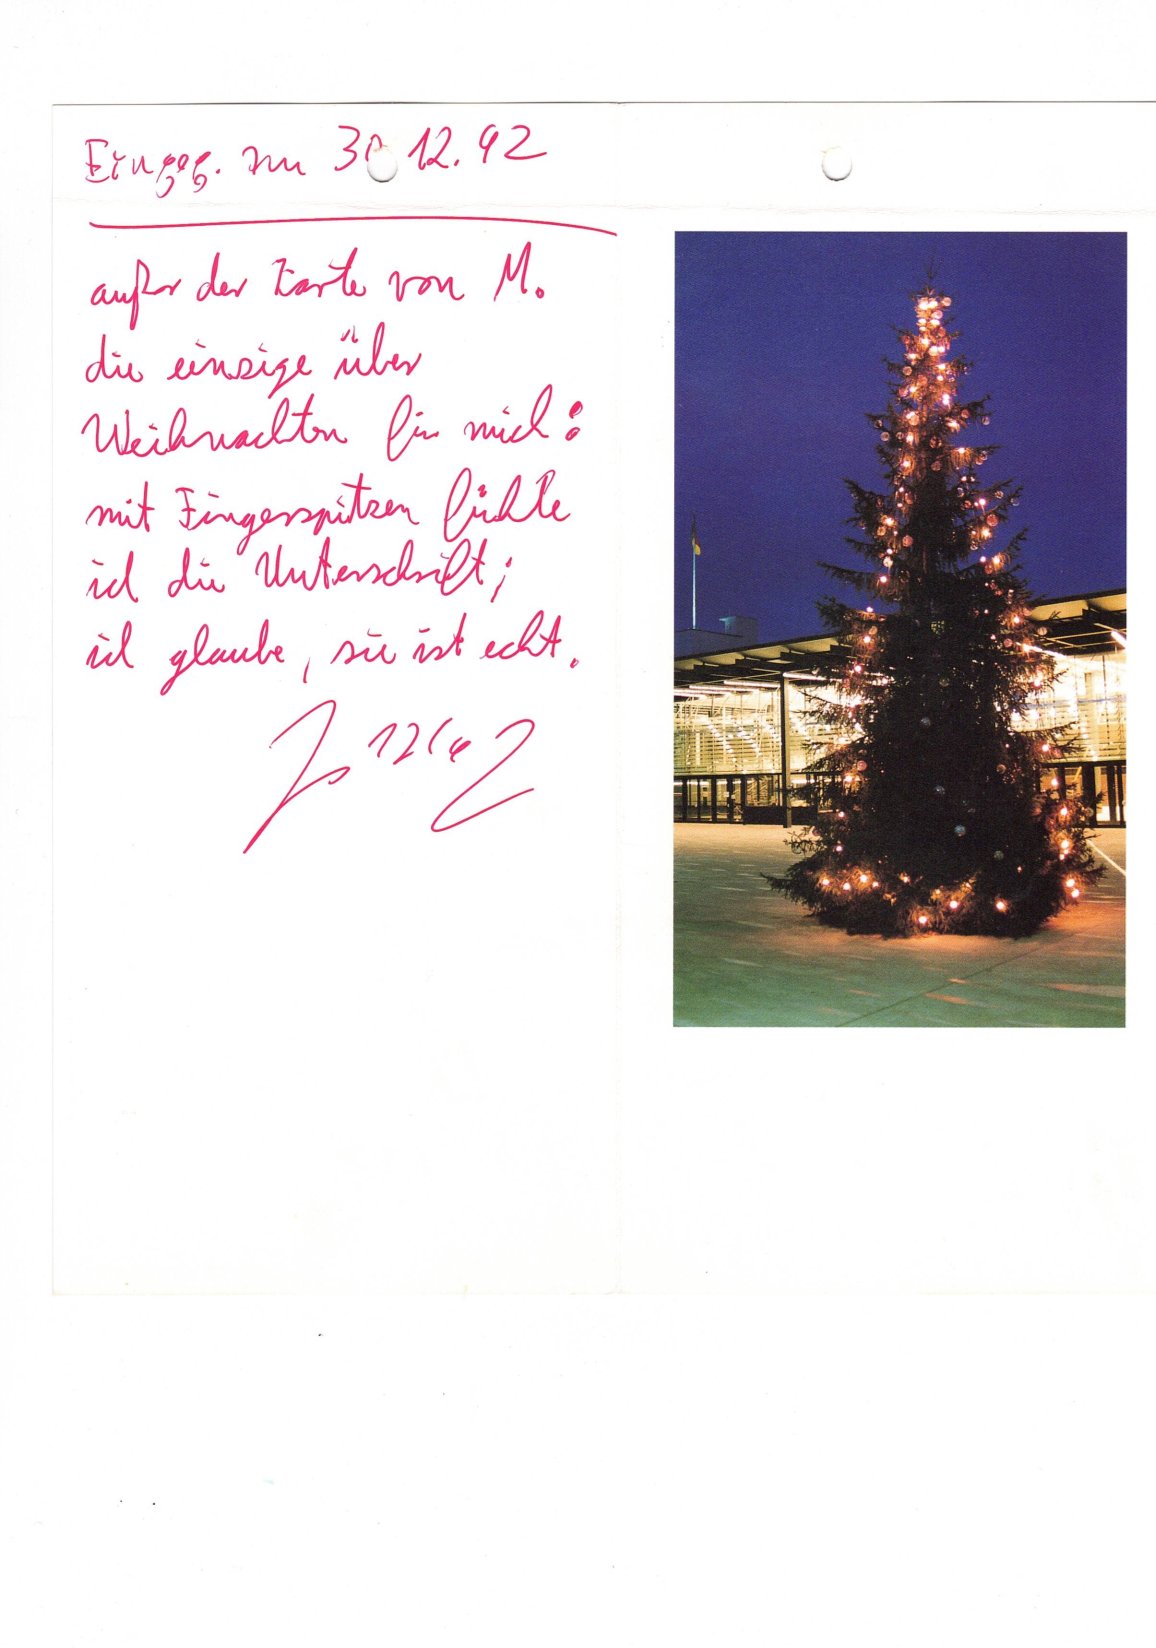 Eingeg. am 30.12.92
außer der Karte von M.
die einzige über
Weihnachten für mich:
mit Fingerspitzen fühlte
ich die Unterschrift;
ich glaube, sie ist echt.